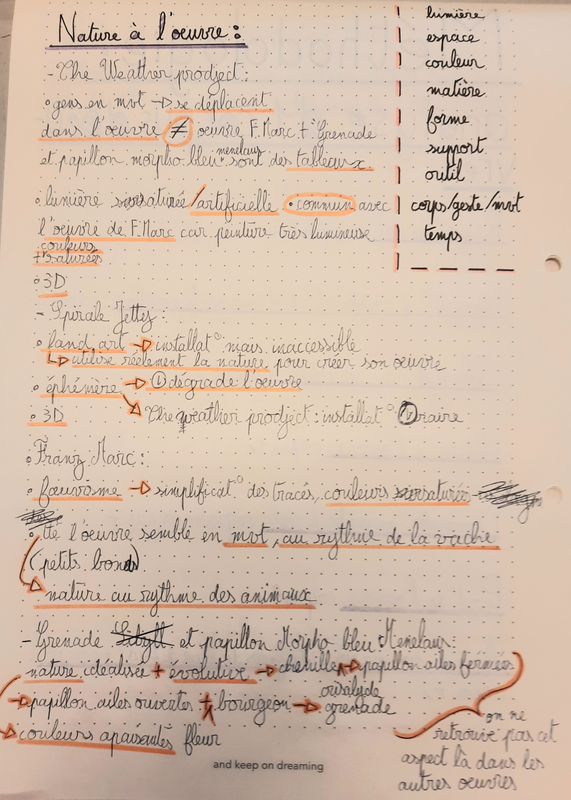 Nature à l'oeuvre :
- The Weather prodject :
• gens en mvt → se déplacent
dans l'oeuvre ≠ oeuvre F. Marc + Grenade
et papillon morpho bleu menelaus sont des tableaux
• lumière sursaturée / artificielle • commun avec
l'oeuvre de F. Marc car peinture très lumineuse
couleurs
+ saturées
• 3D
- Spirale Jetty :
• land art → installat° mais inaccessible
↳ utilise réelement la nature pour créer son oeuvre
• éphémère → dégrade l'oeuvre
• 3D The weather prodject : installat° raire
• Franz Marc :
• fauvisme → simplificat° des tracés, couleurs sursaturée
• tte l'oeuvre semble en mvt, au rythme de la vache
(petits bonds)
→ nature au rythme des animaux
- Grenade et papillon Morpho bleu Menelaus :
nature idéalisée + évolutive → chenille → papillon ailes fermées
→ papillon ailes ouvertes + bourgeon → grenade
crisalyde
→ couleurs apaisantes fleur
on ne
retrouve pas cet
aspect là dans les
autres oeuvres
lumière
espace
couleur
matière
forme
support
outil
corps/geste/mvt
temps
and keep on dreaming